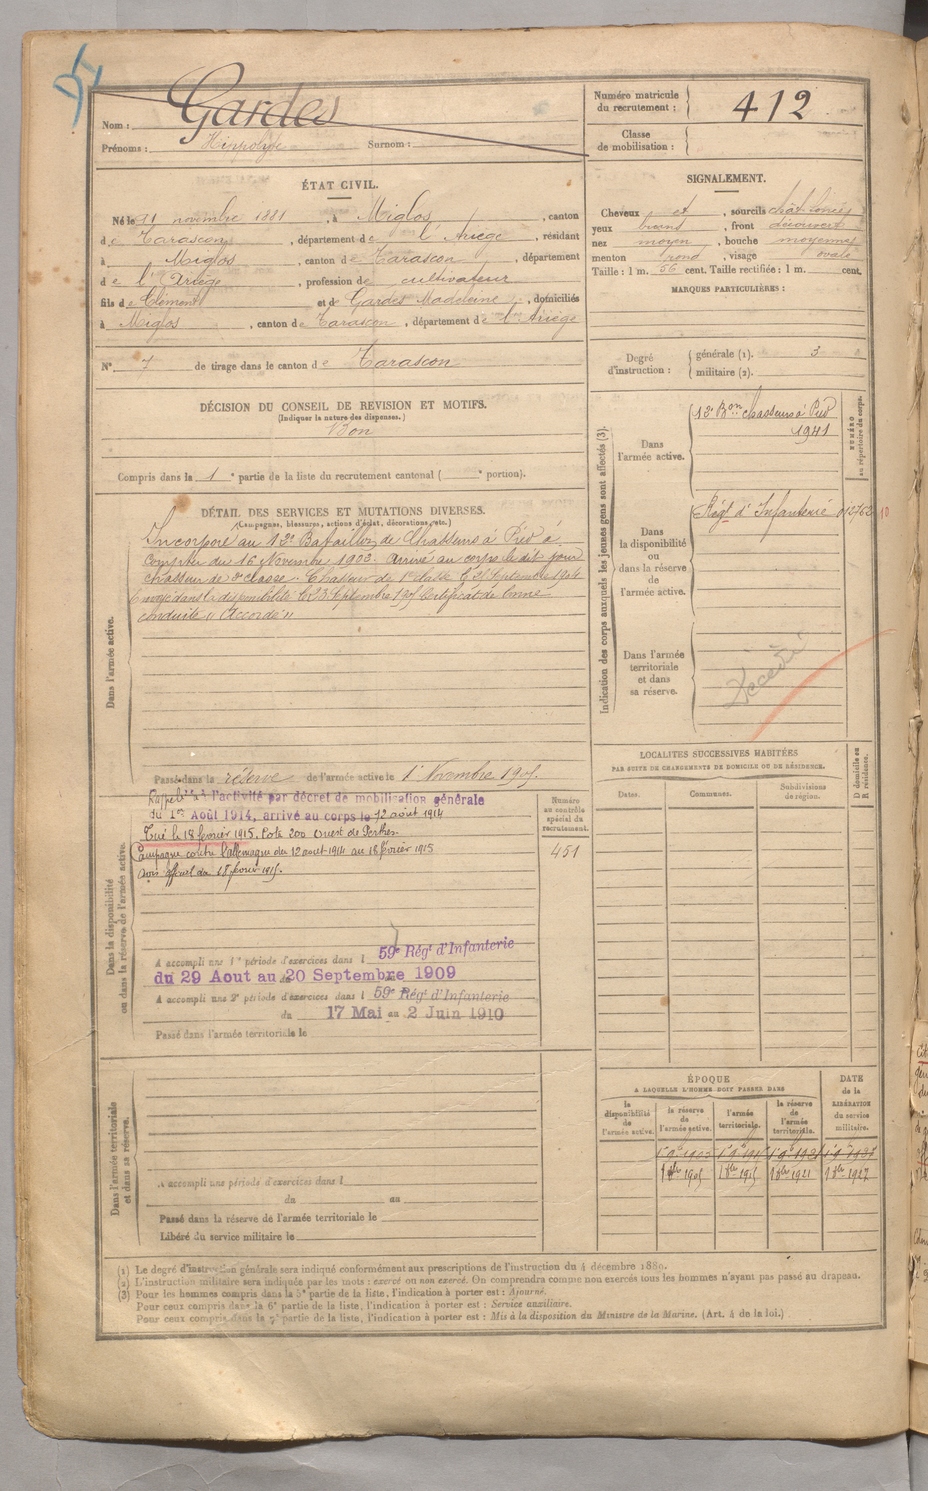 Nom : Gardes
Prénoms : Hippolyte Surnom :
Numéro matricule du recrutement : 412
Classe de mobilisation :
ÉTAT CIVIL.
Né le 21 novembre 1881, à Miglos, canton
de Tarascon, département de l'Ariège, résidant
à Miglos, canton de Tarascon, département
de l'Ariège, profession de cultivateur
fils de Clément et de Gardes Madeleine, domiciliés
à Miglos, canton de Tarascon, département de l'Ariège
N° 7 de tirage dans le canton de Tarascon
DÉCISION DU CONSEIL DE REVISION ET MOTIFS.
(Indiquer la nature des dispenses.)
Bon
Compris dans la 1e partie de la liste du recrutement cantonal ( e portion).
DÉTAIL DES SERVICES ET MUTATIONS DIVERSES.
(Campagnes, blessures, actions d'éclat, décorations, etc.)
Dans l'armée active.
Incorporé au 13e Bataillon de Chasseurs à Pied à
compter du 16 Novembre 1902. arrivé au corps le dit jour
chasseur de 2e classe. Chasseur de 1e classe le 21 Septembre 1904
Envoyé dans la disponibilité le 23 Septembre 1905 Certificat de bonne
conduite "Accordé"
Passé dans la réserve de l'armée active le 1er Novembre 1905.
Dans la disponibilité
ou dans la réserve de l'armée active.
Rappelé à l'activité par décret de mobilisation générale
du 1er Août 1914, arrivé au corps le 12 aout 1914
Tué le 18 février 1915. Cote 200 Ouest de Perthes
Campagne contre l'allemagne du 12 aout 1914 au 18 février 1915
avis officiel du 18 février 1915.
A accompli une 1e période d'exercices dans l 59e Régt d'Infanterie
du 29 Aout au 20 Septembre 1909
A accompli une 2e période d'exercices dans l 59e Régt d'Infanterie
du 17 Mai au 2 Juin 1910
Passé dans l'armée territoriale le
Numéro
au contrôle
spécial du
recrutement.
451
Dans l'armée territoriale
et dans sa réserve.
A accompli une période d'exercices dans l
du au
Passé dans la réserve de l'armée territoriale le
Libéré du service militaire le
SIGNALEMENT.
Cheveux et, sourcils
yeux, front découvert
nez moyen, bouche moyenne
menton rond, visage ovale
Taille : 1 m. 56 cent. Taille rectifiée : 1 m. cent.
MARQUES PARTICULIÈRES :
Degré d'instruction : générale (1). 3
militaire (2).
Indication des corps auxquels les jeunes gens sont affectés (3).
NUMÉRO
au répertoire du corps.
Dans
l'armée active.
13e Bon chasseurs à Pied
1941
Dans
la disponibilité
ou
dans la réserve
de
l'armée active.
Régt d'Infanterie
Dans l'armée
territoriale
et dans
sa réserve.
Décédé
LOCALITES SUCCESSIVES HABITÉES
PAR SUITE DE CHANGEMENTS DE DOMICILE OU DE RÉSIDENCE.
Dates. Communes. Subdivisions de région.
D domicile ou R résidence.
ÉPOQUE
A LAQUELLE L'HOMME DOIT PASSER DANS
DATE
de la
LIBÉRATION
du service
militaire.
la disponibilité de l'armée active.
la réserve de l'armée active.
l'armée territoriale.
la réserve de l'armée territoriale.
1 9bre 1905 1 9bre 1915 1 8bre 1921 1 8bre 1927
(1) Le degré d'instruction générale sera indiqué conformément aux prescriptions de l'instruction du 4 décembre 1889.
(2) L'instruction militaire sera indiquée par les mots : exercé ou non exercé. On comprendra comme non exercés tous les hommes n'ayant pas passé au drapeau.
(3) Pour les hommes compris dans la 5e partie de la liste, l'indication à porter est : Ajourné.
Pour ceux compris dans la 6e partie de la liste, l'indication à porter est : Service auxiliaire.
Pour ceux compris dans la 7e partie de la liste, l'indication à porter est : Mis à la disposition du Ministre de la Marine. (Art. 4 de la loi.)